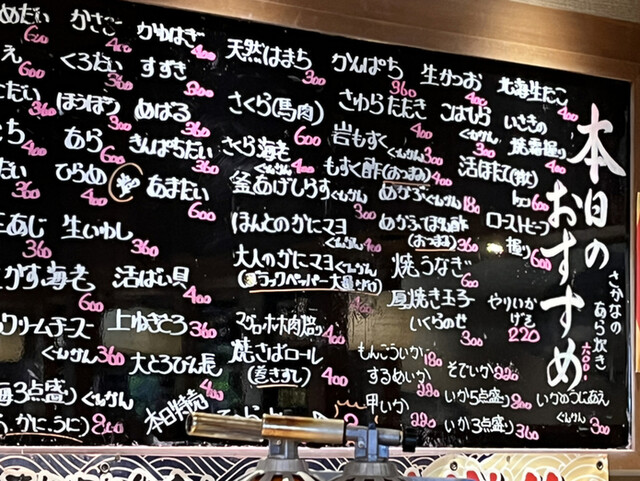 本日のおすすめ
さかなのあら炊き 600-
北海生だこ 400
いさきの焼霜握り
ローストビーフ握り 600
やりいかげそ 220
いかめうにあえぐんかん 300
生かつお 400
こはだ
ぐんかん 300
めかぶぐんかん 180
めかぶぽん酢(おつまみ) 360
そでいか 220
いか5点盛り 800
いか3点盛り 360
かんぱち 360
さわらたたき 400
岩もずくぐんかん 300
もずく酢(おつまみ) 400
焼うなぎ 600
厚焼き玉子いくらのせ 300
もんごういか 180
するめいか 220
甲いか 220
天然はまち 300
さくら(馬肉) 600
さくら海老ぐんかん 400
釜あげしらすぐんかん 300
ほんとのかにマヨぐんかん 400
大人のかにマヨぐんかん
(ブラックペッパー大量がけ) 400
マグロホホ肉炙り 400
焼さばロール(巻きすし) 400
かわはぎ 400
すずき 300
めばる 300
きんぱちだい 360
あまだい 600
かさご 400
くろだい 360
ほうぼう 300
あら 600
ひらめ 400
生いわし 360
活ばい貝 400
上ねぎとろ 360
大とろびん長 400
本日特売
めだい 600
あじ 360
がす海老 600
クリームチーズぐんかん 360
3点盛りぐんかん
かに、うに) 860